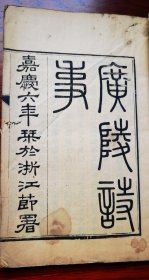 廣陵詩
事
嘉慶六年栞於浙江節署